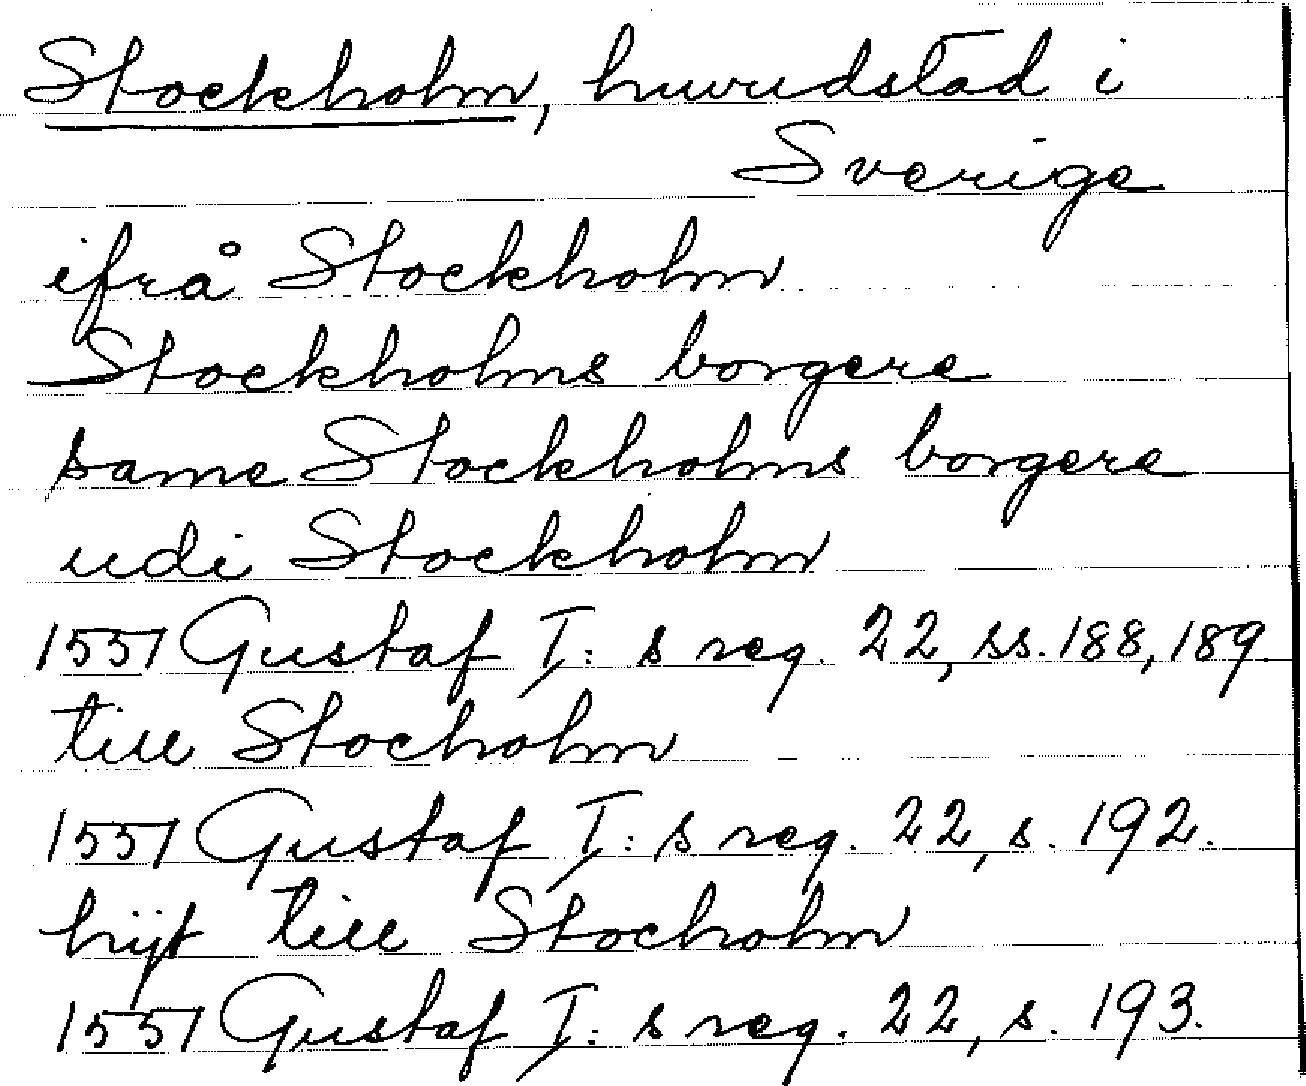 Stockholm, huvudstad i
Sverige
ifrå Stockholm
Stockholms borgere
same Stockholms borgere
udi Stockholm
1551 Gustaf I: s reg. 22, ss. 188, 189
till Stocholm
1551 Gustaf I: s reg. 22, s. 192.
hijt till Stocholm
1551 Gustaf I: s reg. 22, s. 193.